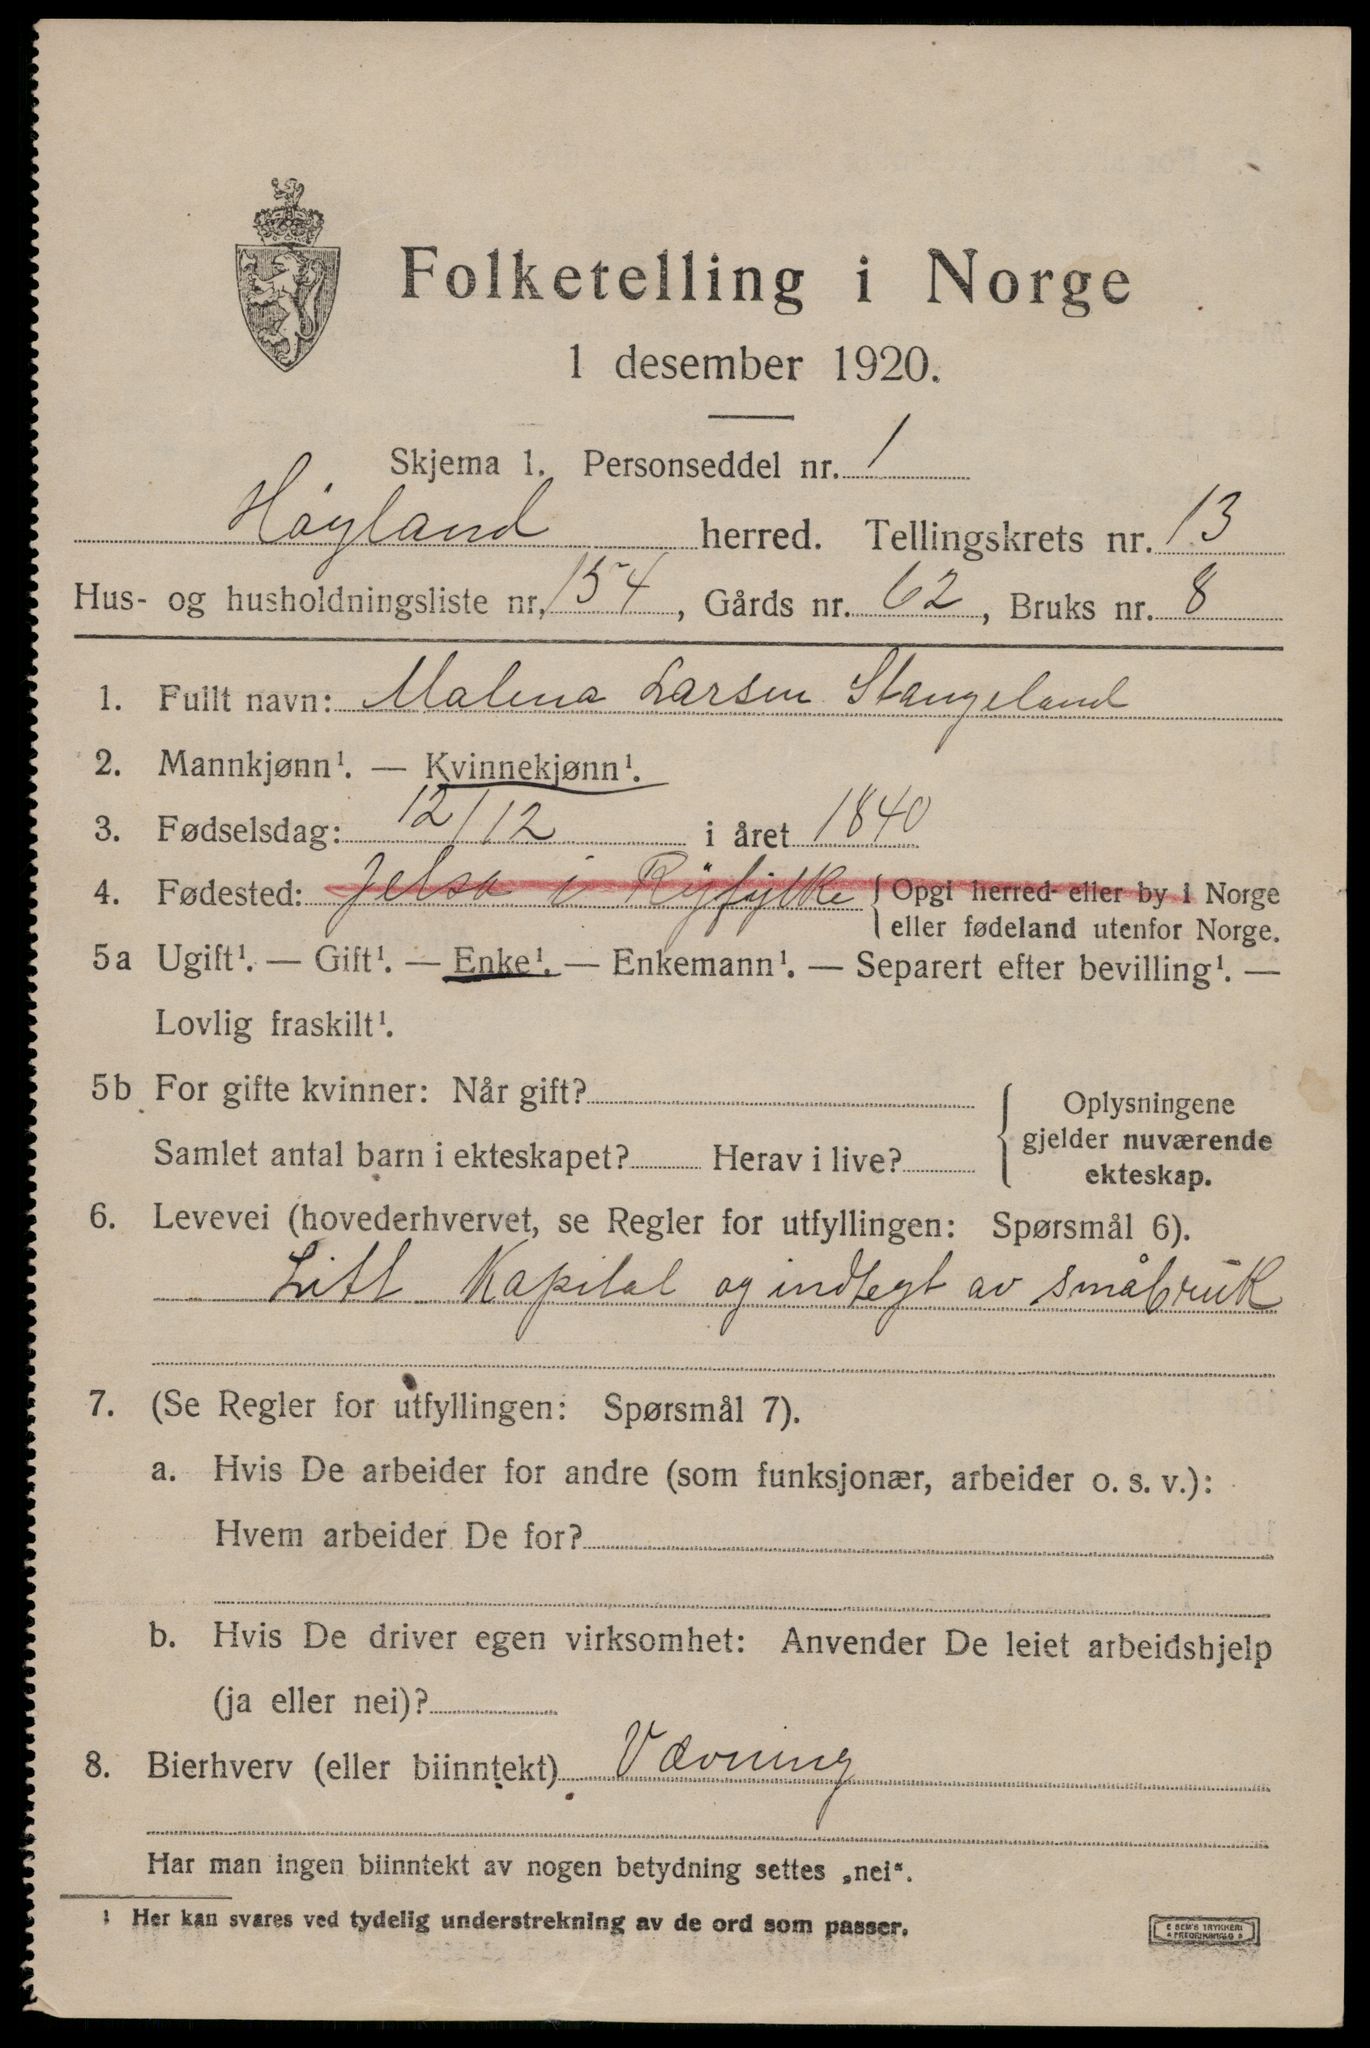 Folketelling i Norge
1 desember 1920.
Skjema 1. Personseddel nr. 1
Høyland herred. Tellingskrets nr. 13
Hus- og husholdningsliste nr. 154, Gårds nr. 62, Bruks nr. 8
1. Fullt navn: Malena Larsen Stangeland
2. Mannkjønn¹. — Kvinnekjønn¹.
3. Fødselsdag: 12/12 i året 1840
4. Fødested: Jelsa i Ryfylke { Opgi herred eller by i Norge
eller fødeland utenfor Norge.
5a Ugift¹. — Gift¹. — Enke¹. — Enkemann¹. — Separert efter bevilling¹. —
Lovlig fraskilt¹.
5b For gifte kvinner: Når gift?
Samlet antal barn i ekteskapet? Herav i live?
{ Oplysningene
gjelder nuværende
ekteskap.
6. Levevei (hovederhvervet, se Regler for utfyllingen: Spørsmål 6).
Litt Kapital og indtegt av småbruk
7. (Se Regler for utfyllingen: Spørsmål 7).
a. Hvis De arbeider for andre (som funksjonær, arbeider o. s. v.):
Hvem arbeider De for?
b. Hvis De driver egen virksomhet: Anvender De leiet arbeidshjelp
(ja eller nei)?
8. Bierhverv (eller biinntekt) Vævning
Har man ingen biinntekt av nogen betydning settes „nei“.
¹ Her kan svares ved tydelig understrekning av de ord som passer.
E SEM'S TRYKKERI
FREDRIKSHALD